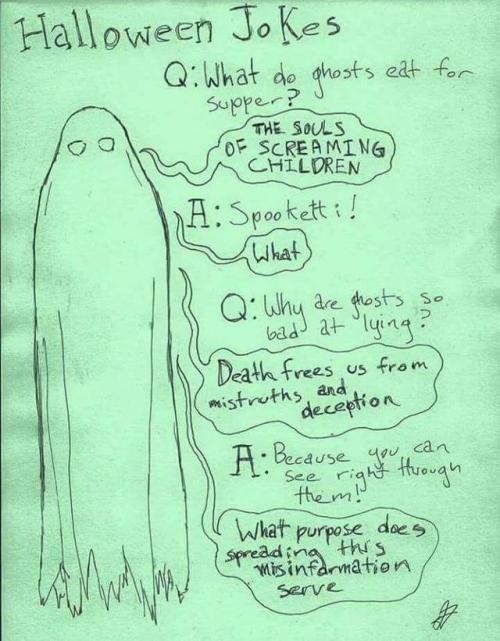 Halloween Jokes
Q: What do ghosts eat for
supper?
THE SOULS
OF SCREAMING
CHILDREN
A: Spooketti!
What
Q: Why are ghosts so
bad at lying?
Death frees us from
mistruths and
deception
A: Because you can
see right through
them!
What purpose does
spreading this
misinformation
serve